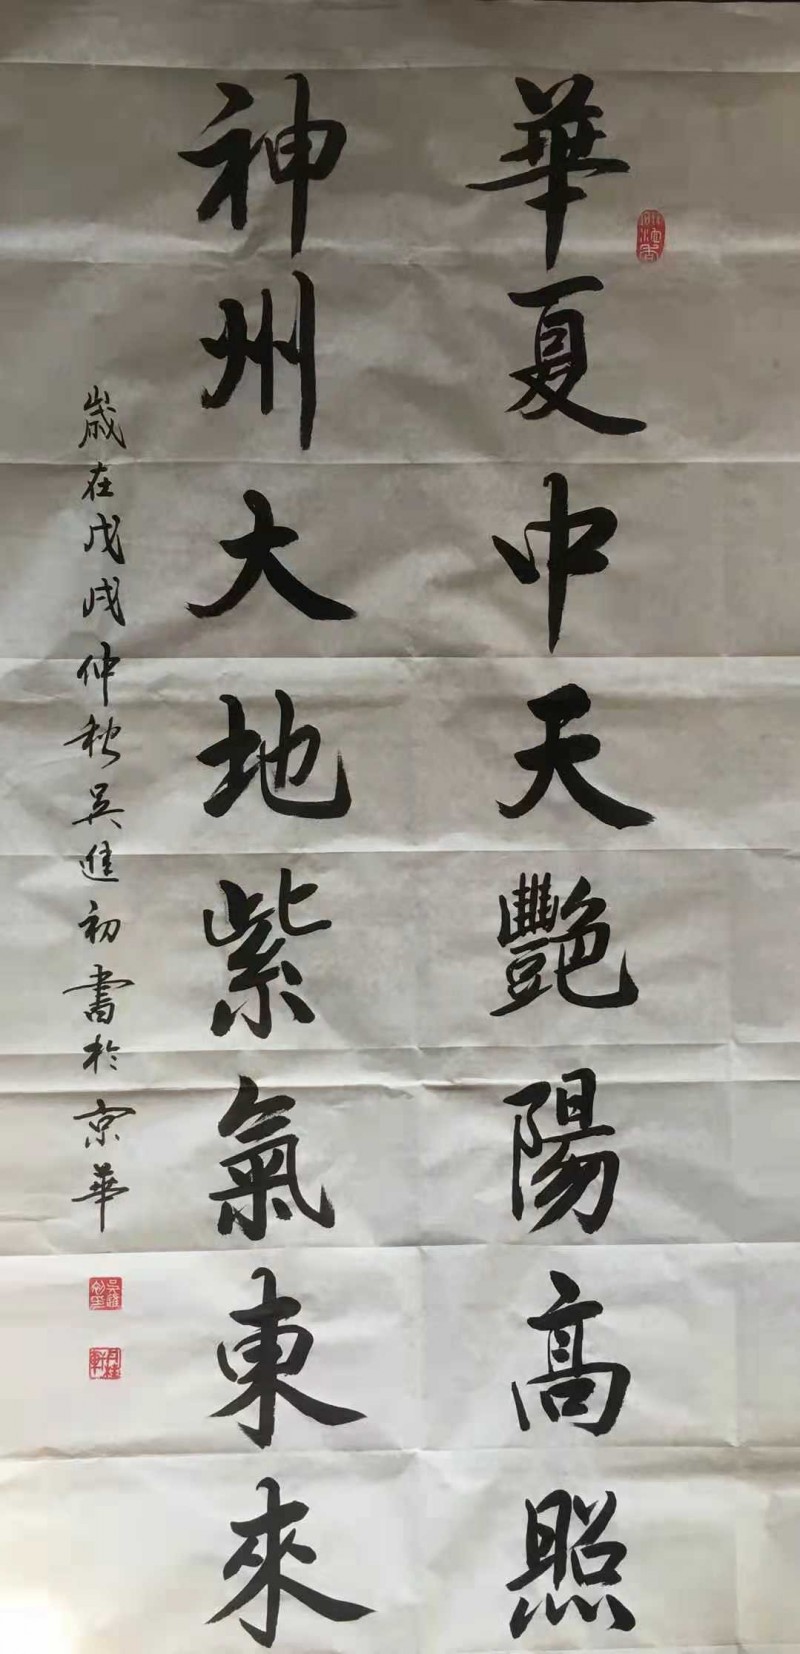 華夏中天艷陽高照
神州大地紫氣東來
歲在戊戌仲秋吴進初書於京華